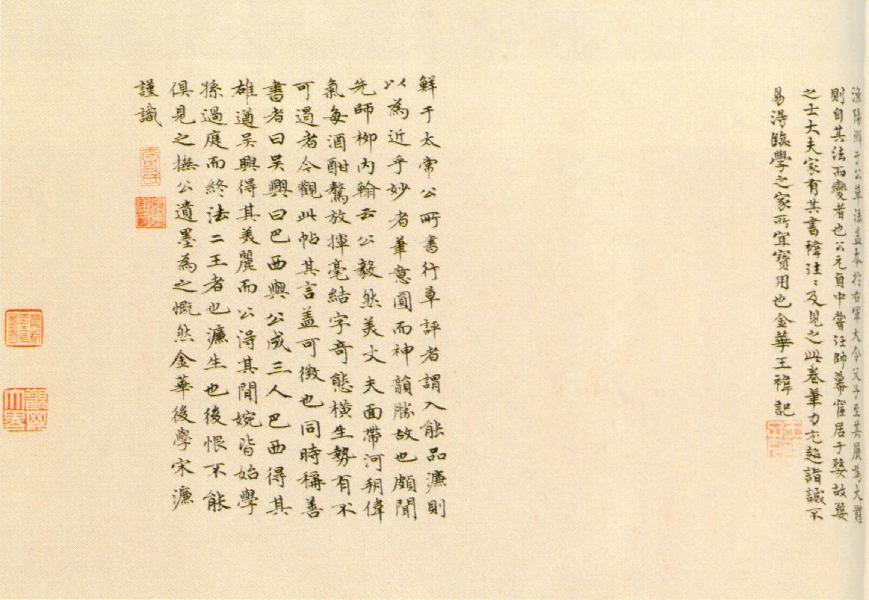 漁陽鮮于公草法蓋本於右軍大令父子至其展為大體
則自其法而變者也公元貞中嘗泣師幕寓居于婺故婺
之士大夫家有其書禕往〻及見之此卷筆力尤超詣誠不
易得臨學之家所宜寶用也金華王禕記
鮮于太常公所書行草評者謂入能品濂則
以為近乎妙者筆意圓而神韻勝故也頗聞
先師柳內翰云公毅然美丈夫面帶河朔偉
氣每酒酣驁放揮毫結字奇態橫生勢有不
可遏者今觀此帖其言蓋可徵也同時稱善
書者曰吳興曰巴西與公成三人巴西得其
雄遒吳興得其美麗而公得其閒婉皆始學
孫過庭而終法二王者也濂生也後恨不能
俱見之撫公遺墨為之慨然金華後學宋濂
謹識